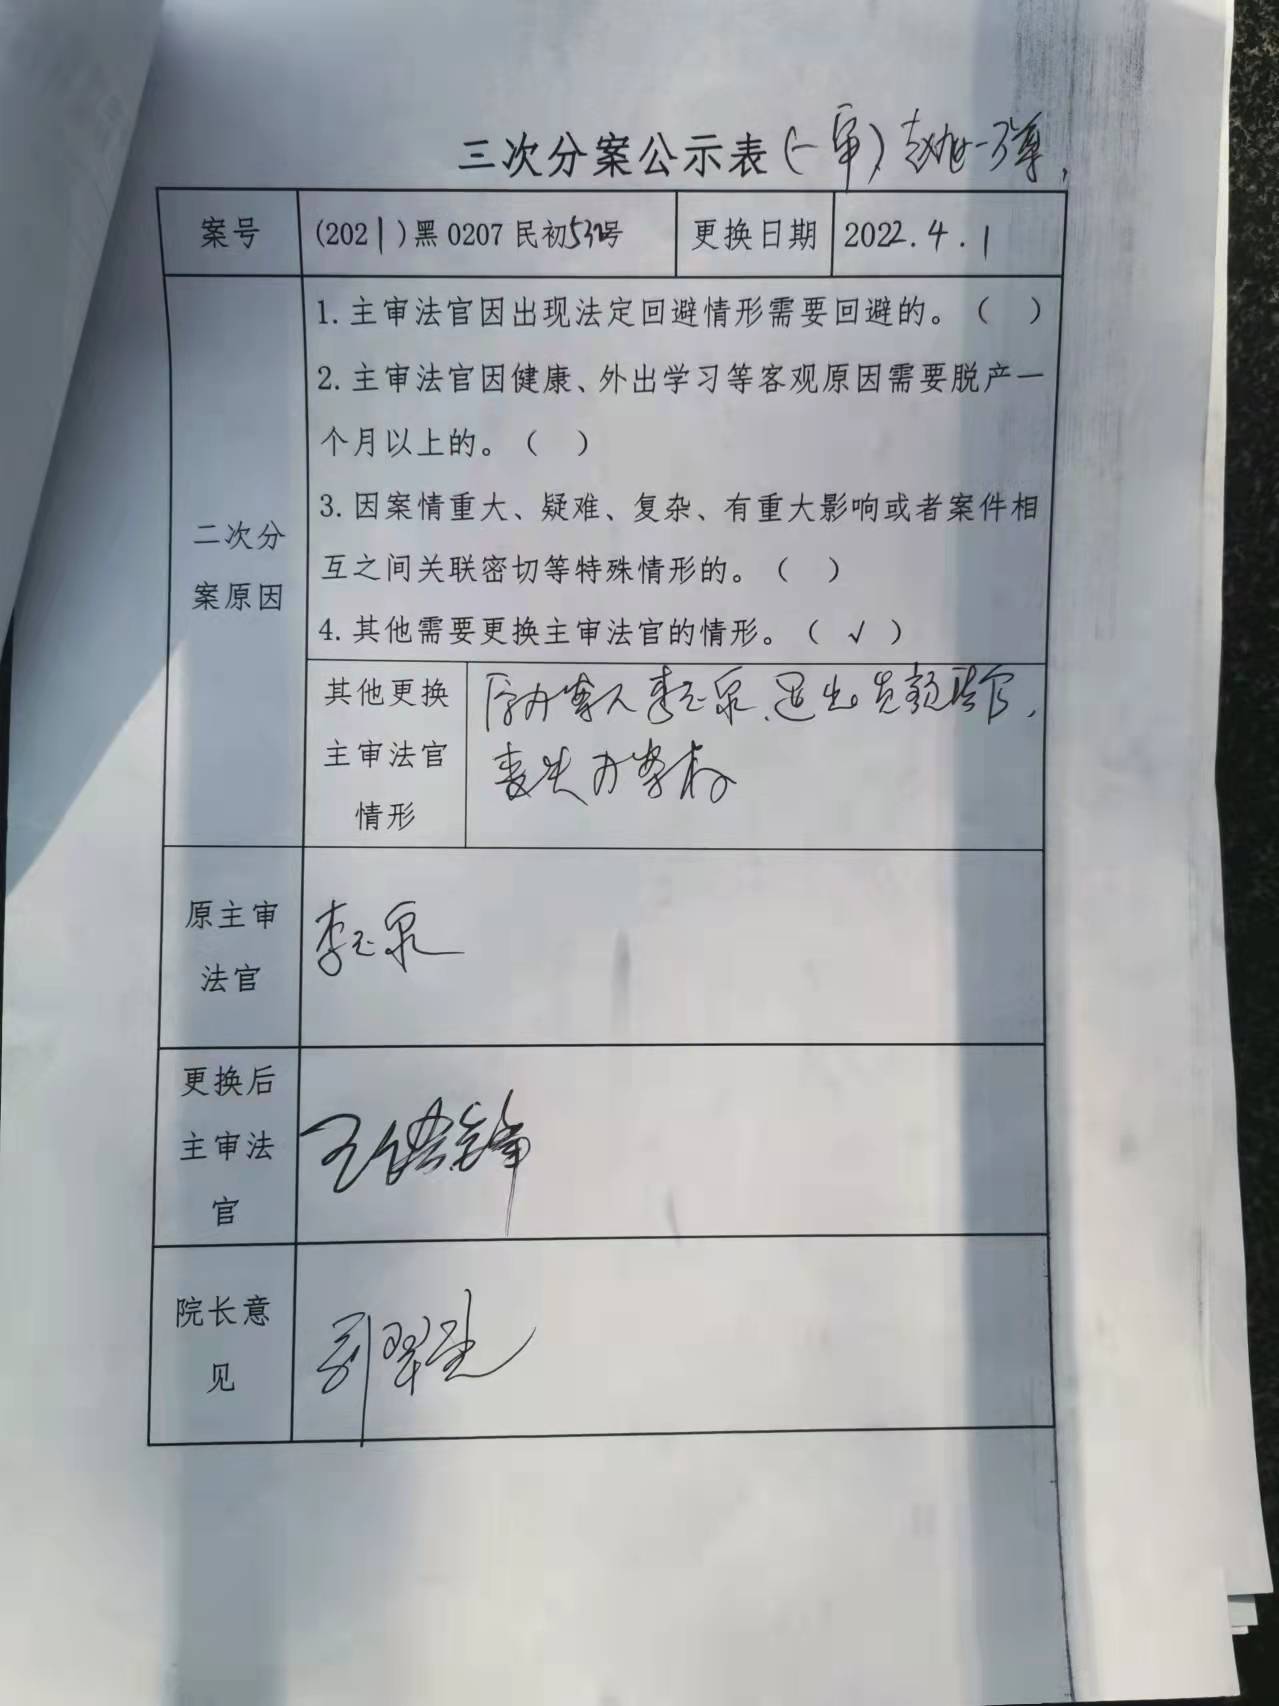 三次分案公示表(一审)
案号
(2021)黑0207民初532号
更换日期
2022.4.1
二次分
案原因
1.主审法官因出现法定回避情形需要回避的。( )
2.主审法官因健康、外出学习等客观原因需要脱产一
个月以上的。( )
3.因案情重大、疑难、复杂、有重大影响或者案件相
互之间关联密切等特殊情形的。( )
4.其他需要更换主审法官的情形。(√)
其他更换
主审法官
情形
原办案人李玉泉、退出员额法官,
丧失办案权
原主审
法官
李玉泉
更换后
主审法
官
王
院长意
见
刘翠